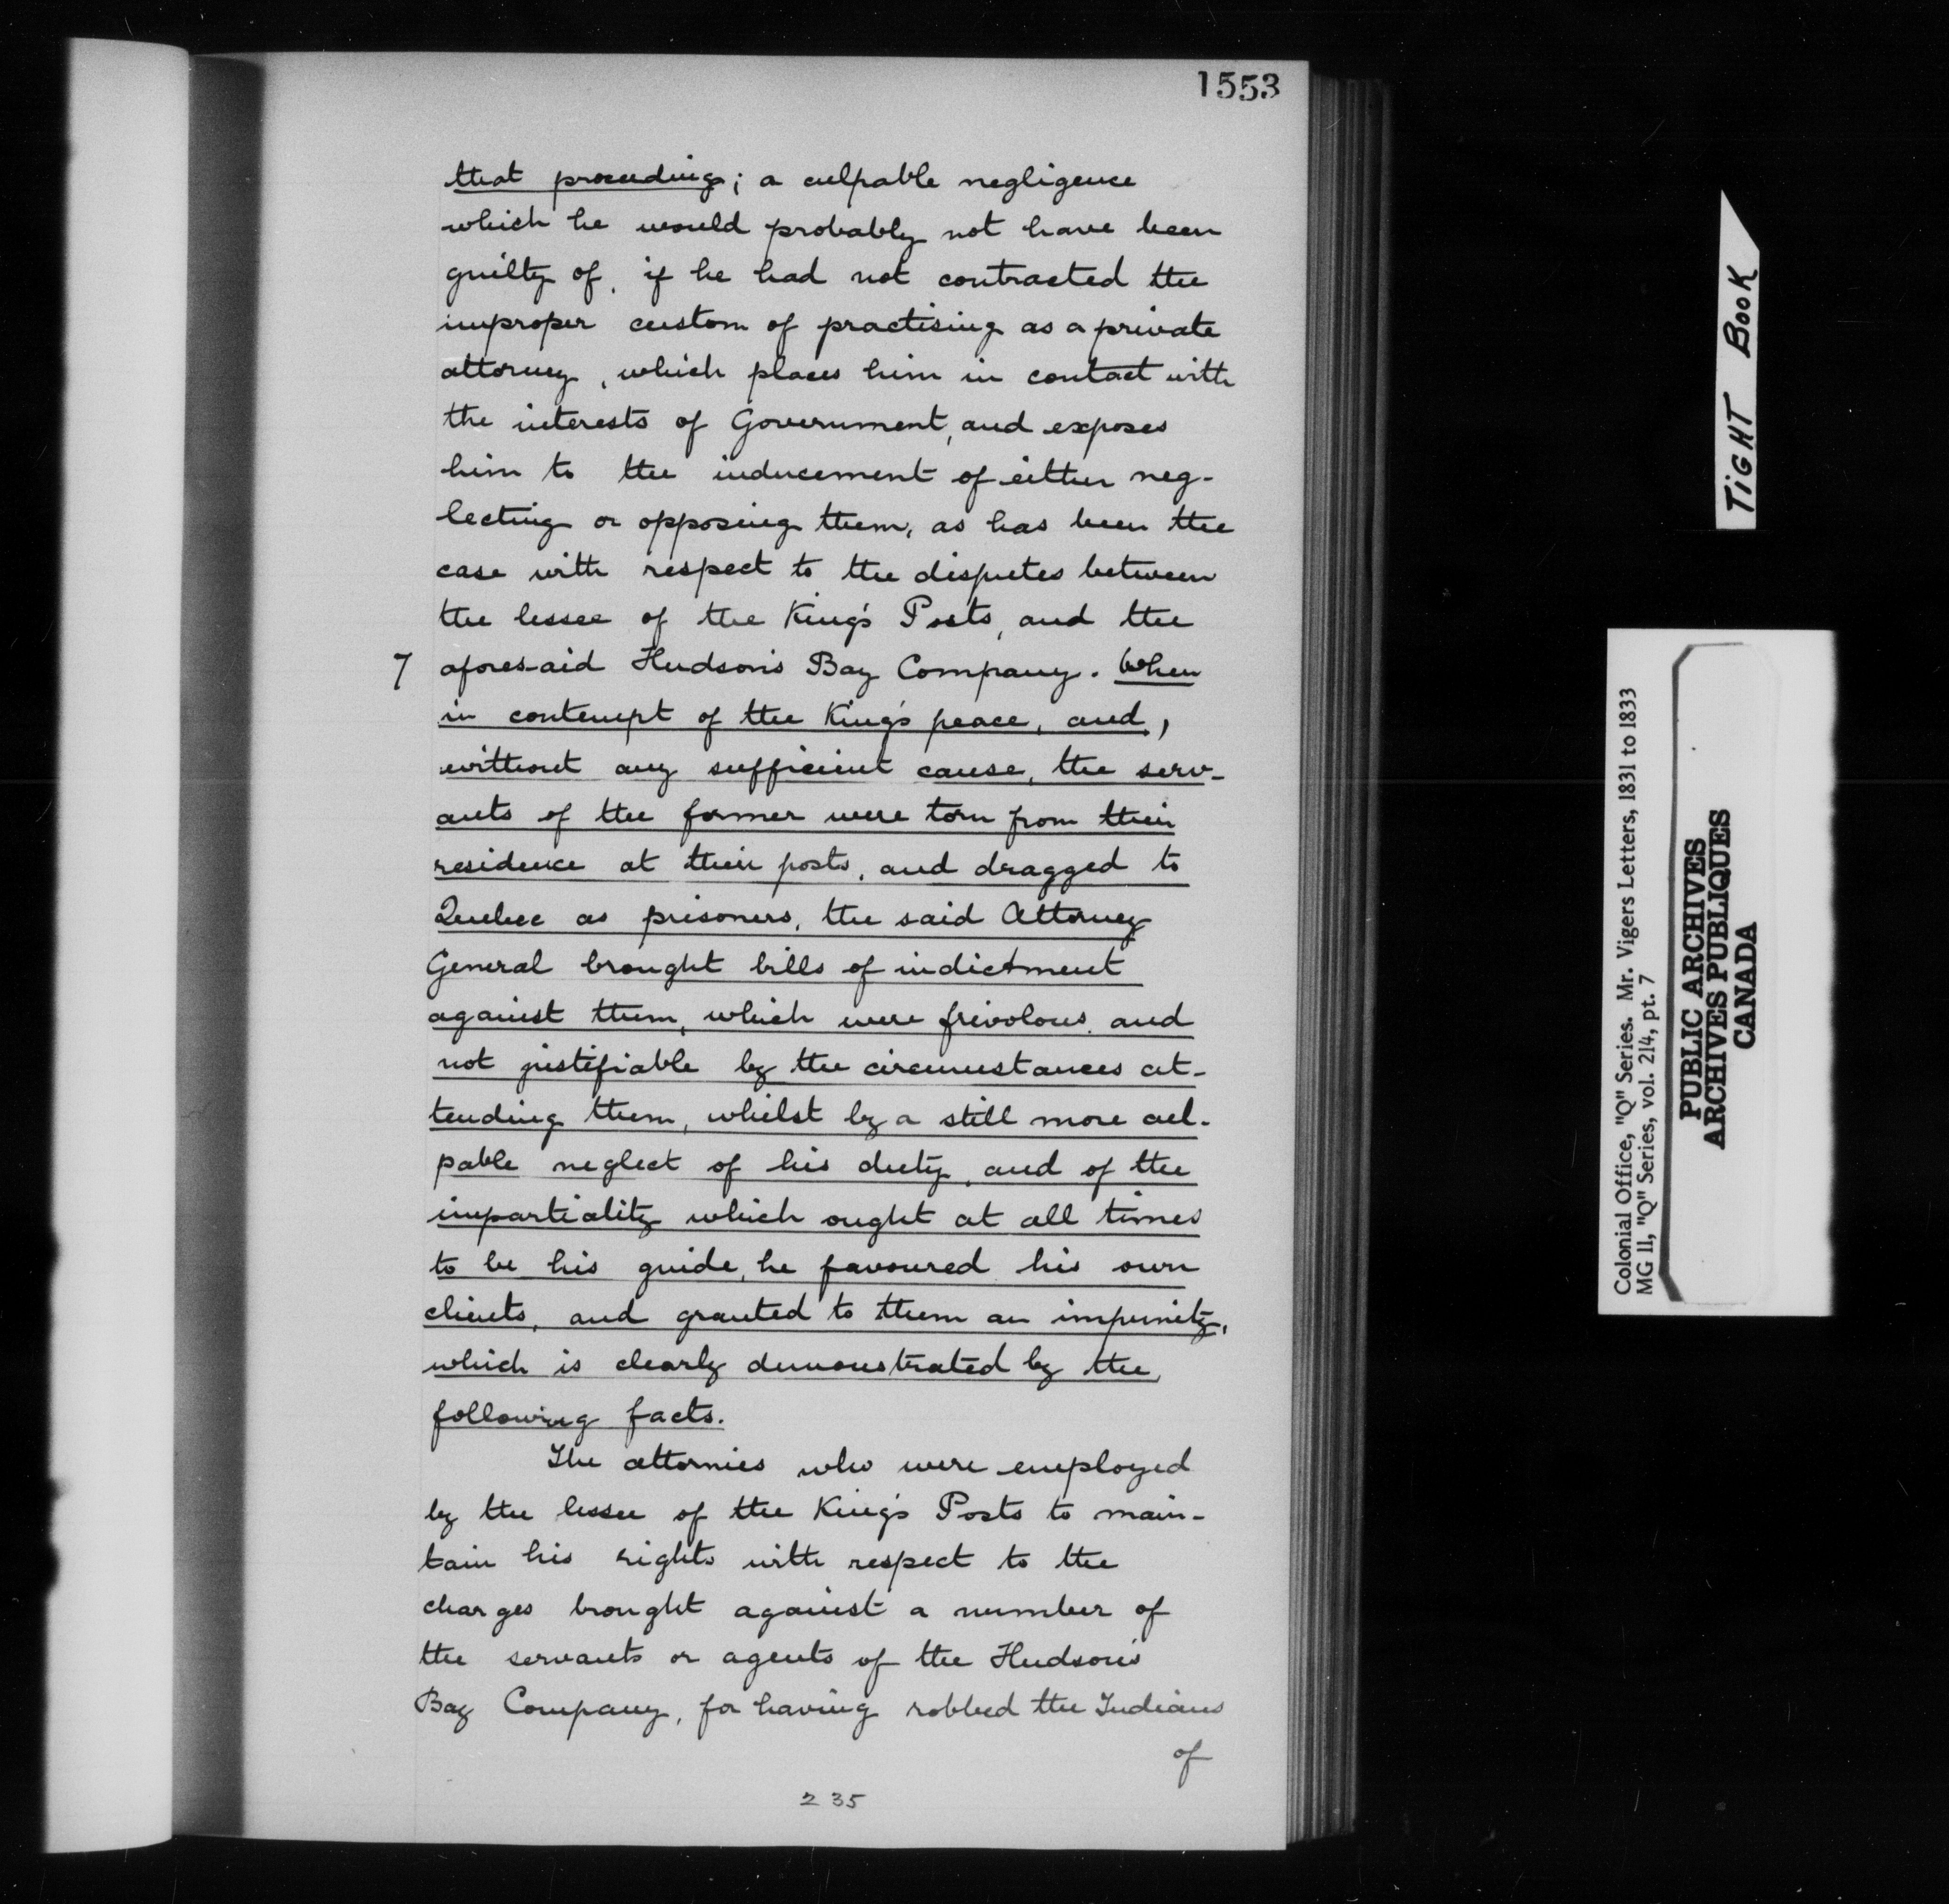 1553
that proceeding; a culpable negligence
which he would probably not have been
guilty of, if he had not contracted the
improper custom of practising as a private
attorney, which places him in contact with
the interests of Government, and exposes
him to the inducement of either neg-
lecting or opposing them, as has been the
case with respect to the disputes between
the lessee of the King's Posts, and the
7 afores-aid Hudson's Bay Company. When
in contempt of the King's peace, and,
without any sufficient cause, the serv-
ants of the former were torn from their
residence at their posts, and dragged to
Quebec as prisoners, the said Attorney
General brought bills of indictment
against them, which were frivolous and
not justifiable by the circumstances at-
tending them, whilst by a still more cul-
pable neglect of his duty, and of the
impartiality which ought at all times
to be his guide, he favoured his own
clients, and granted to them an impunity,
which is clearly demonstrated by the,
following facts.
The attornies who were employed
by the lessee of the King's Posts to main-
tain his rights with respect to the
charges brought against a number of
the servants or agents of the Hudson's
Bay Company, for having robbed the Indians
of
235
TiGHT BooK
Colonial Office, "Q" Series. Mr. Vigers Letters, 1831 to 1833
MG 11, "Q" Series, vol. 214, pt. 7
PUBLIC ARCHIVES
ARCHIVES PUBLIQUES
CANADA